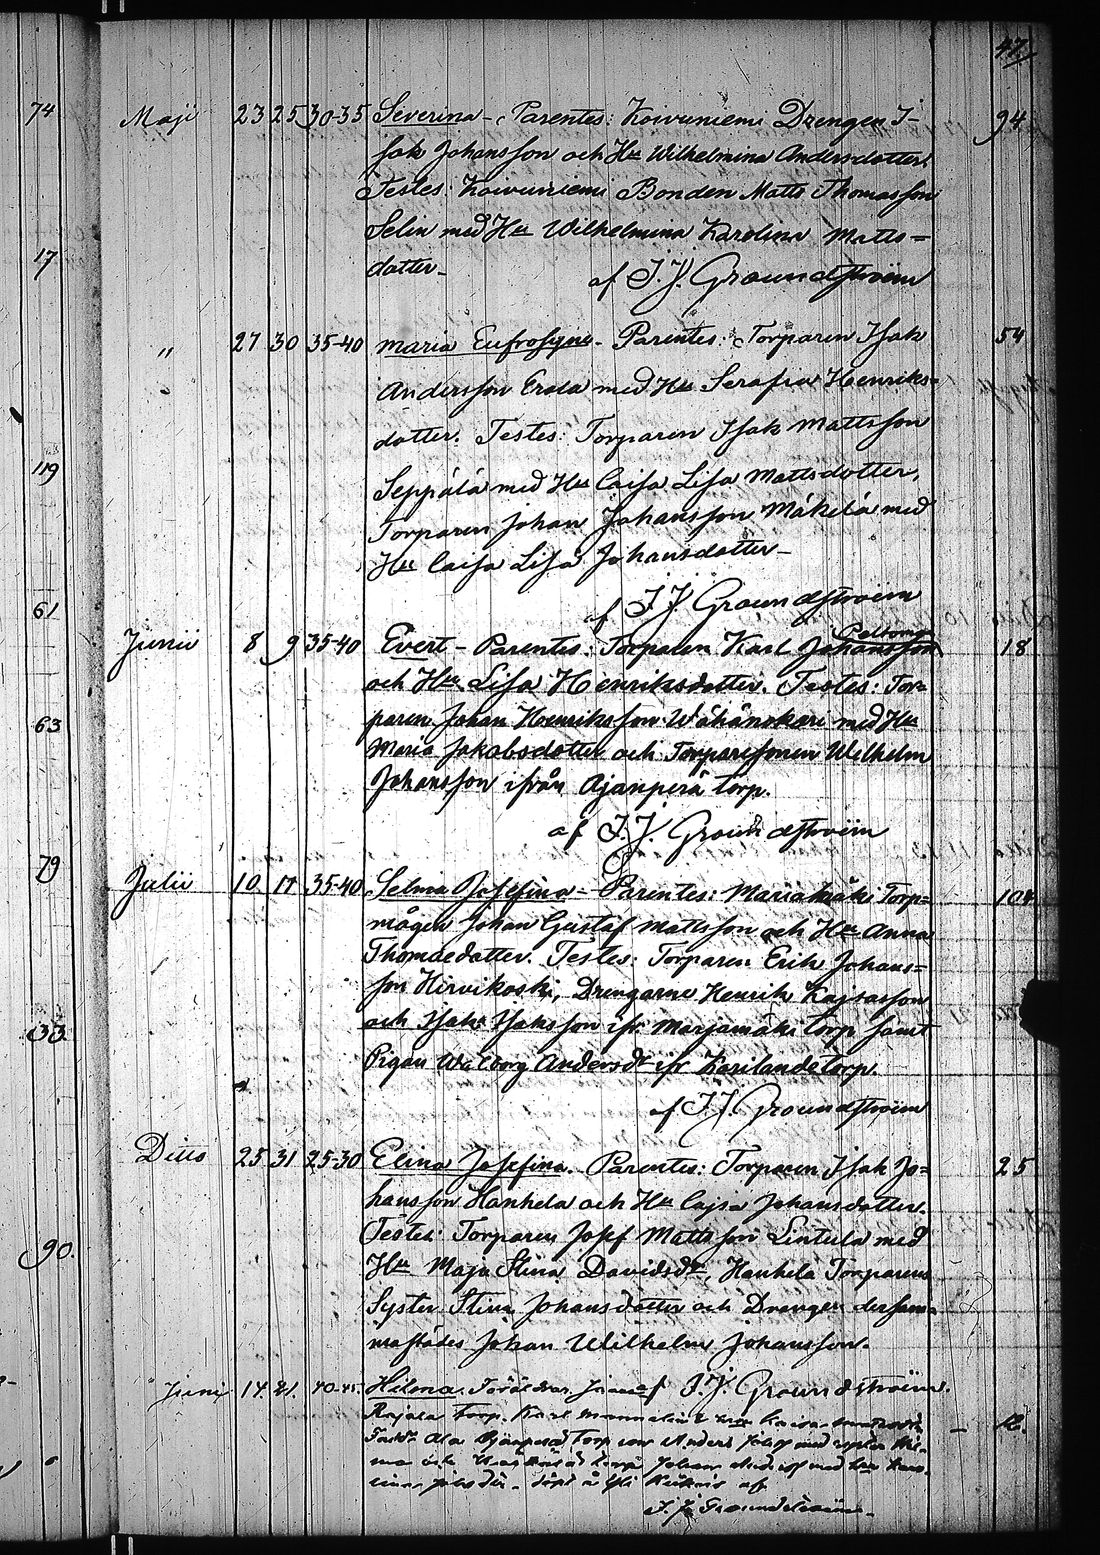 47
74 Maji 23 25 30-35 Severina - Parentes: Koivuniemi Drengen I- 94
sak Johansson och Hu Wilhelmina Andersdotter.
Testes: Koivuniemi Bonden Matts Thomasson
Selin med Hu Wilhelmina Karolina Matts=
17 dotter_ af I. J. Groundstroëm
" 27 30 35-40 Maria Eufrosyne - Parentes: Torparen Isak 54
Andersson Erola med Hu Serafia Henriks=
dotter. Testes: Torparen Isak Mattsson
119 Seppälä med Hu Caisa Lisa Mattsdotter,
Torparen Johan Johansson Mäkelä med
Hu Caisa Lisa Johansdotter_
61 af I. J. Groundstroëm
Peltomaa
Junii 8 9 35-40 Evert - Parentes: Torparen Karl Johansson 18
och Hu Lisa Henriksdotter. Testes: Tor=
63 paren Johan Henriksson Wähänokari med Hu
Maria Jakobsdotter och Torparesonen Wilhelm
Johansson ifrån Ojanperä torp.
af I. J. Groundstroëm
79 Julii 10 11 35-40 Selma Josefina - Parentes: Mariamäki Torp= 104
mågen Johan Gustaf Mattsson och Hu Anna
Thomaedotter. Testes: Torparen Erik Johans=
son Hirvikoski, Drengarne Henrik Kajsasson
33 och Isak Isaksson ifr Marjamäki torp samt
Pigan Walborg Andersdr ifr Karilande torp.
af I. J. Groundstroëm
Ditto 25 31 25-30 Elina Josefina. Parentes: Torparen Isak Jo= 25
hansson Hanhela och Hu Cajsa Johansdotter.
90. Testes: Torparen Josef Mattsson Lintula med
Hu Maja Stina Davidsdr, Hanhela Torparens
Syster Stina Johansdotter och Drengen dersam=
mastädes Johan Wilhelm Johansson.
Junij 14. 21. 40-45. Hilma. Föräldrar af I. J. Groundstroëm.
Rajala torp. Karl Hu Kaisa _ 12.
torp Anders med
Johan med Hu
af
I. J. Groundstroëm_